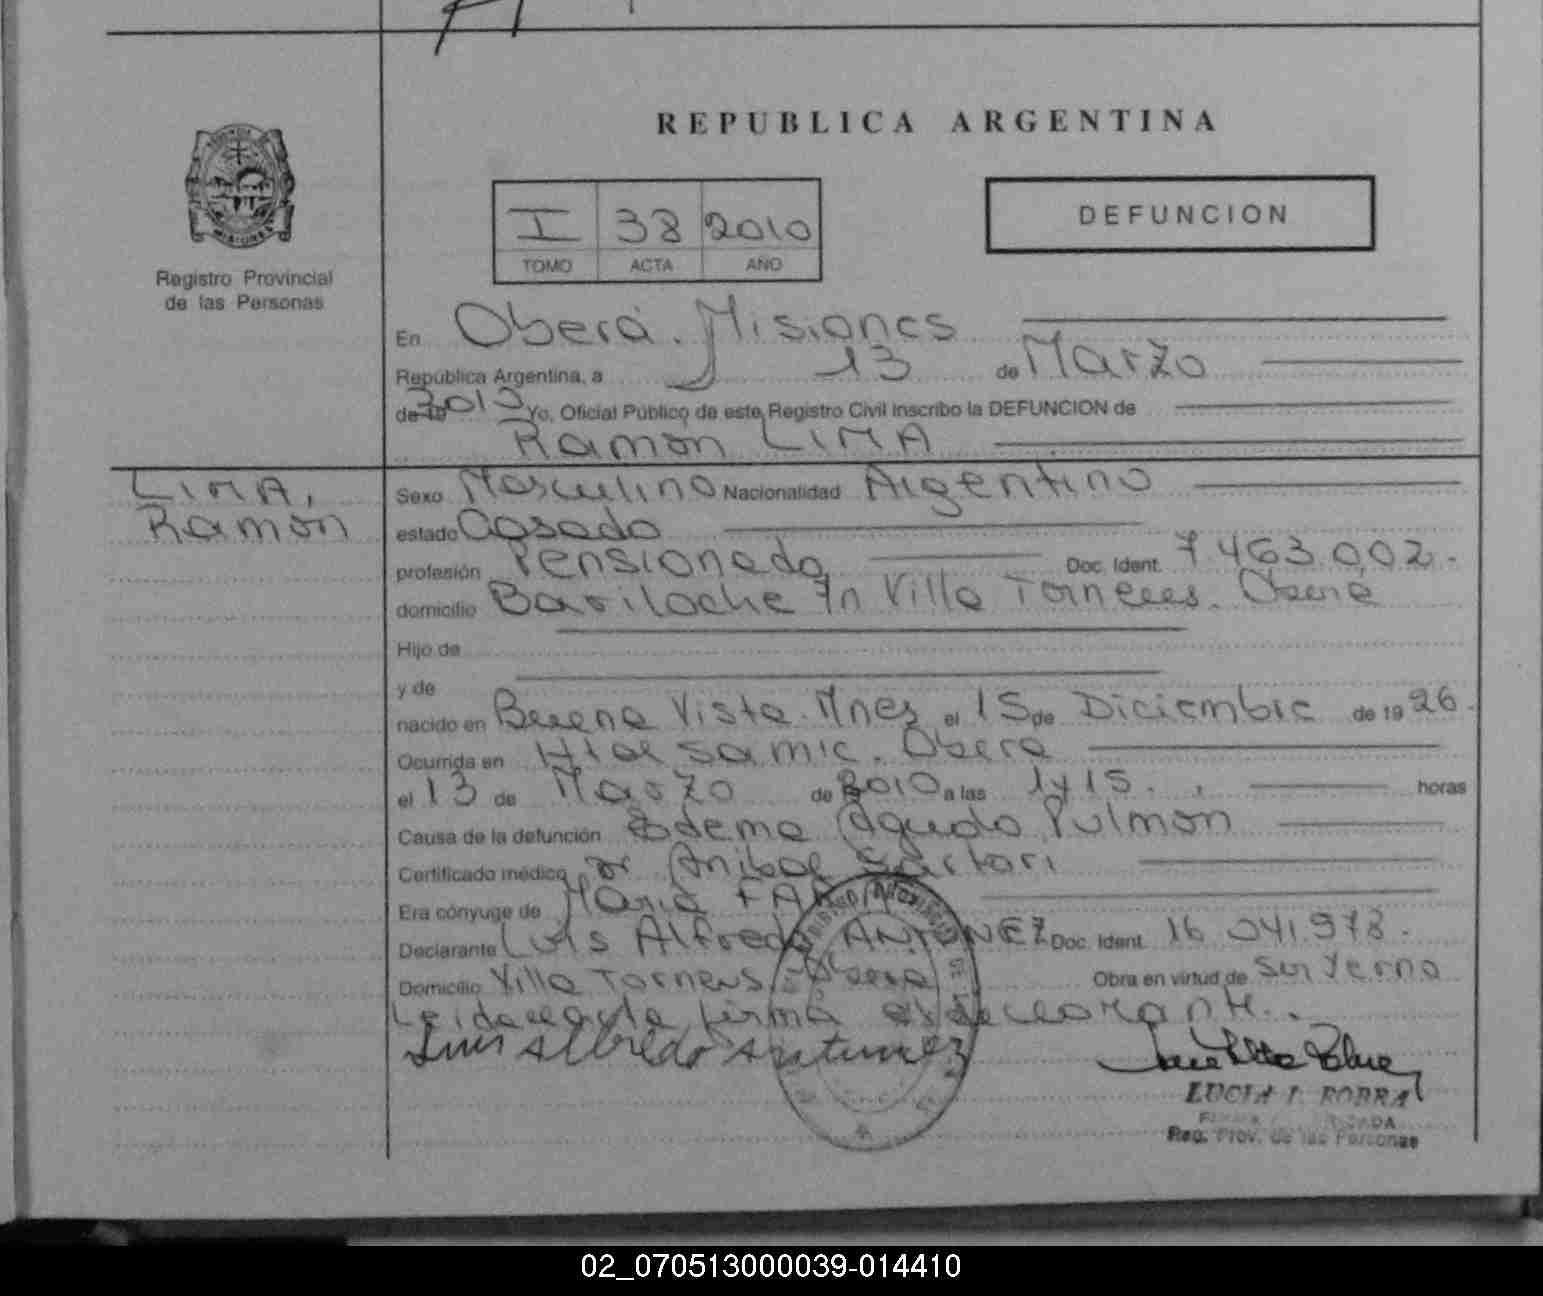 REPUBLICA ARGENTINA
I 38 2010
TOMO ACTA AÑO
DEFUNCION
MISIONES
Registro Provincial
de las Personas
En Oberá. Misiones
República Argentina, a 13 de Marzo
de 19 2010 Yo, Oficial Público de este Registro Civil inscribo la DEFUNCION de
Ramón LIMA
LIMA,
Ramón
Sexo Masculino Nacionalidad Argentino
estado Casado
profesión Pensionado Doc. Ident. 7.463.002.-
domicilio Bariloche Villa Torneus. Oberá
Hijo de
y de
nacido en Buena Vista. Mnes el 15 de Diciembre de 19 26.
Ocurrida en Htal Samic. Oberá
el 13 de Marzo de 2010 a las 1y15. horas
Causa de la defunción Edema Agudo Pulmon
Certificado médico Dr Anibal Sartori
Era cónyuge de Maria
Declarante Luis Alfredo ANTUNEZ Doc. Ident. 16.041.978.
Domicilio Villa Torneus Oberá Obra en virtud de ser Yerno
Leida el acta firma el declarante.
Luis Alfredo Antunez
LUCIA I. BOBRA
FIRMA AUTORIZADA
Reg. Prov. de las Personas
02_070513000039-014410